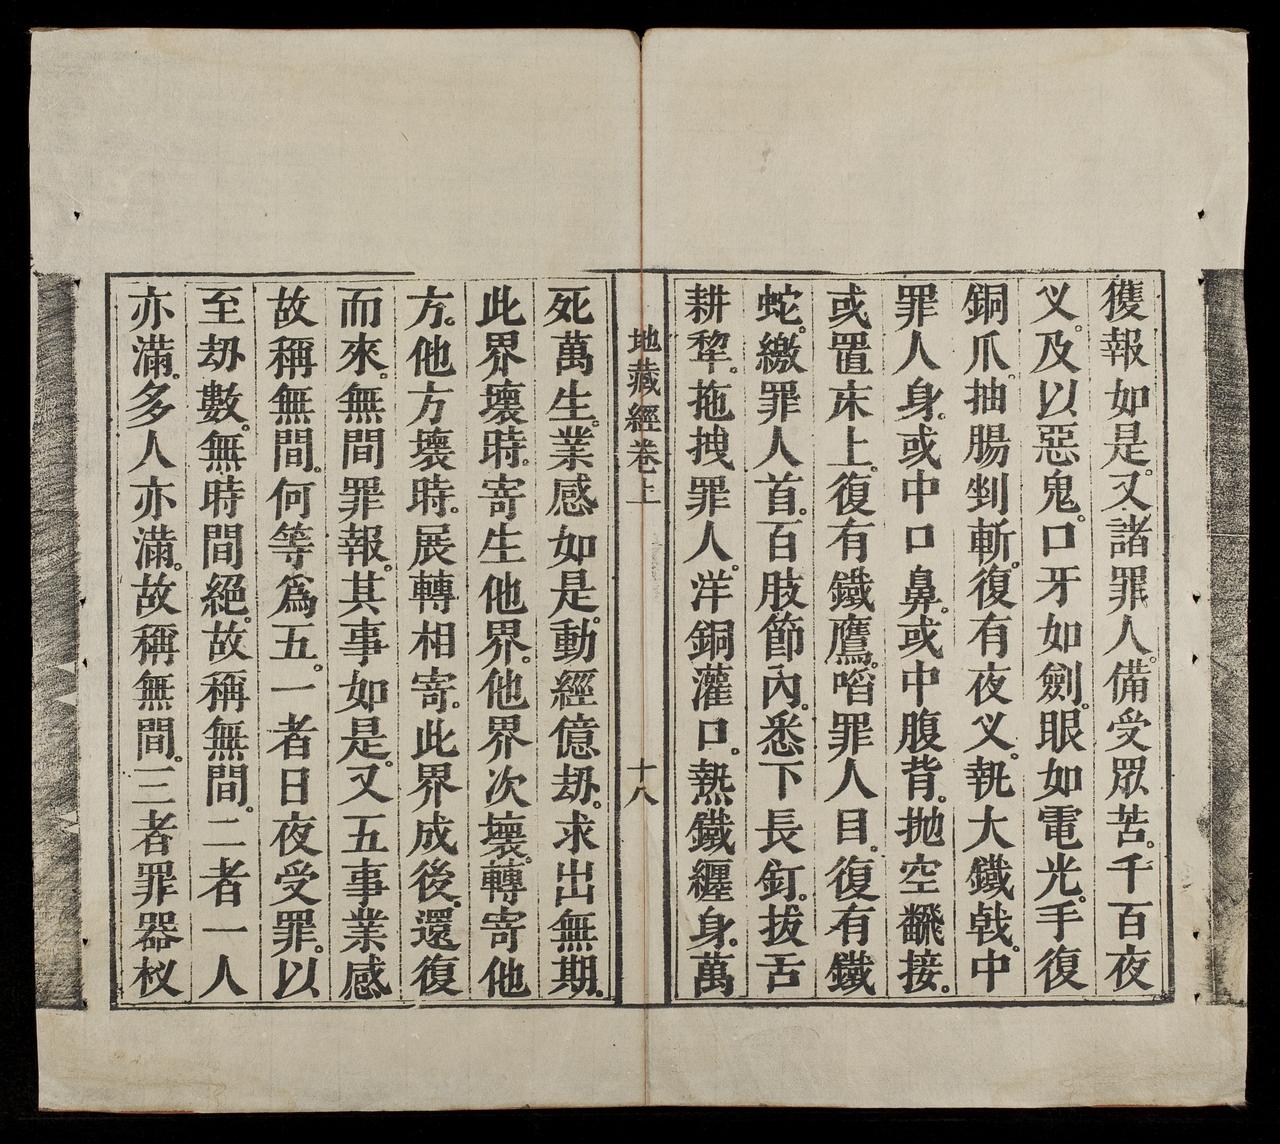 獲報如是。又諸罪人。備受眾苦。千百夜
叉。及以惡鬼。口牙如劍。眼如電光。手復
銅爪。抽腸剉斬。復有夜叉。執大鐵戟。中
罪人身。或中口鼻。或中腹背。拋空飜接。
或置床上。復有鐵鷹。㗖罪人目。復有鐵
蛇。繳罪人首。百肢節內。悉下長釘。拔舌
耕犂。拖拽罪人。洋銅灌口。熱鐵纒身。萬
地藏經卷上 十八
死萬生。業感如是。動經億劫。求出無期。
此界壞時。寄生他界。他界次壞。轉寄他
方。他方壞時。展轉相寄。此界成後。還復
而來。無間罪報。其事如是。又五事業感
故稱無間。何等為五。一者日夜受罪。以
至劫數。無時間絕。故稱無間。二者一人
亦滿。多人亦滿。故稱無間。三者罪器杈